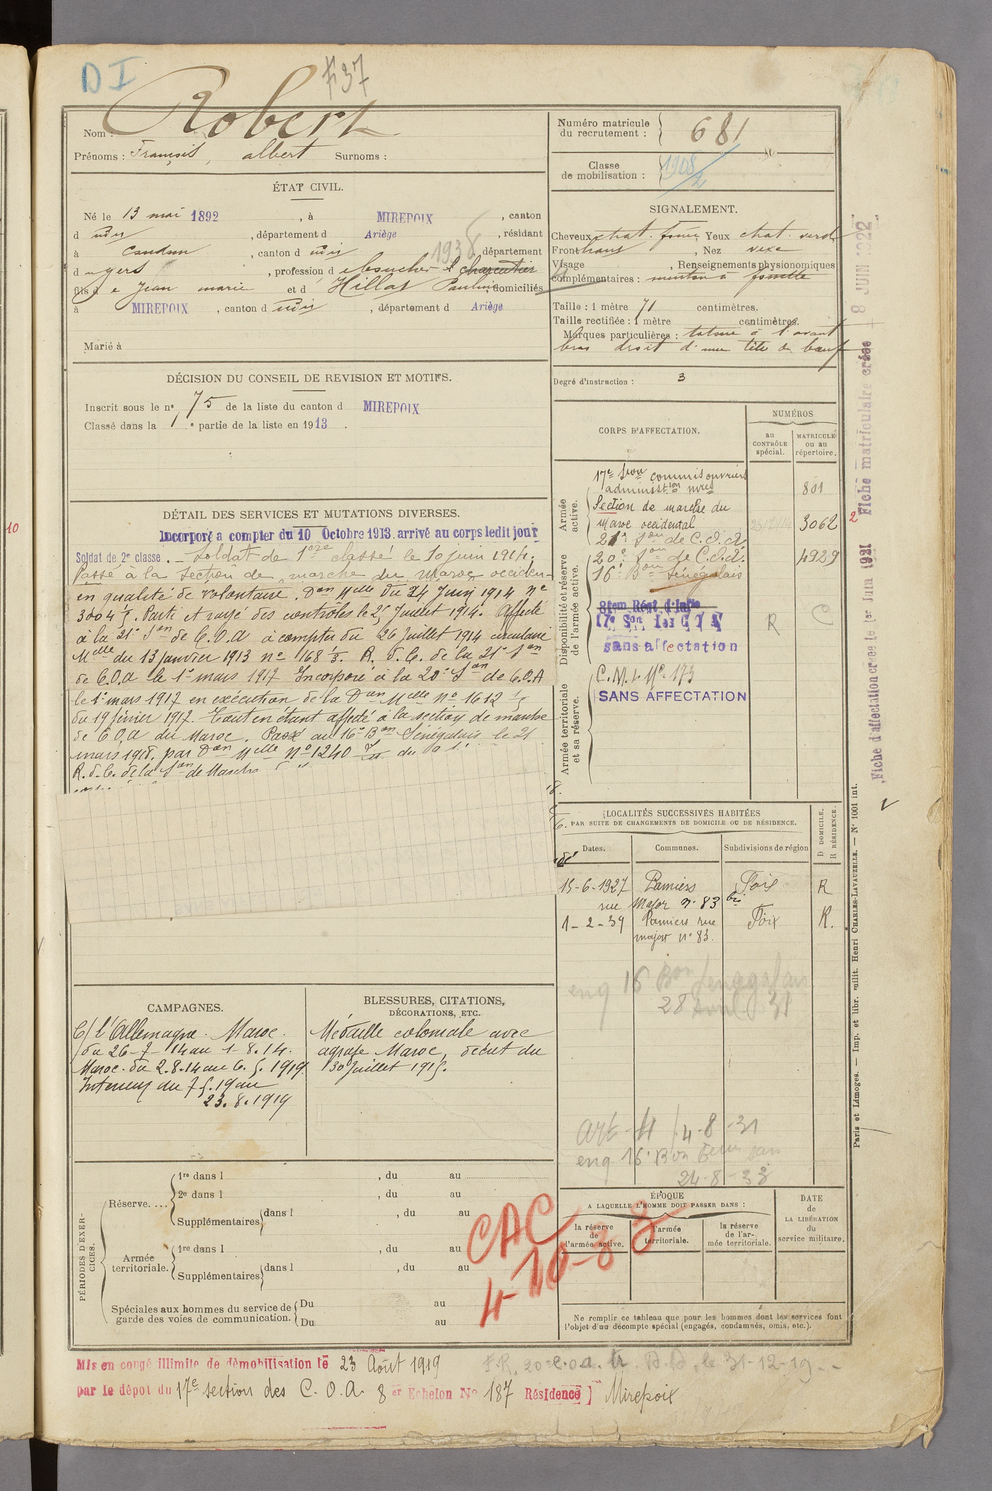 D I
F37
Nom : Robert
Prénoms : François, albert Surnoms :
Numéro matricule du recrutement : 681
Classe de mobilisation : 1908/2
ÉTAT CIVIL.
Né le 13 mai 1892, à MIREPOIX, canton
d udit, département d Ariège, résidant
à Condom, canton d udit 1938 département
d u gers, profession d e boucher et charcutier
fils d e Jean marie et d Hillat Pauline domiciliés
à MIREPOIX, canton d udit, département d Ariège
Marié à
SIGNALEMENT.
Cheveux chat. foncé Yeux chat. verd
Front Nez vexe
Visage , Renseignements physionomiques
complémentaires : menton à fossette
Taille : 1 mètre 71 centimètres.
Taille rectifiée : 1 mètre centimètres.
Marques particulières : tatoué à l'avant
bras droit d'une tête de boeuf
Degré d'instruction : 3
DÉCISION DU CONSEIL DE REVISION ET MOTIFS.
Inscrit sous le n° 75 de la liste du canton d MIREPOIX
Classé dans la 1re partie de la liste en 1913.
DÉTAIL DES SERVICES ET MUTATIONS DIVERSES.
Incorporé a compter du 10 Octobre 1913. arrivé au corps ledit jour
Soldat de 2e classe. — Soldat de 1ère classe le 10 juin 1914.
Passé à la Section de marche du Maroc occiden-
en qualité de volontaire. Don Mlle du 24 Juin 1914 No
3004 1/5. Parti et rayé des contrôles le 25 Juillet 1914. Affecté
à la 21e Son de C.O.A à compter du 26 Juillet 1914 circulaire
Mlle du 13 janvier 1913 no 168 1/5. R. d. C. de la 21e Son
de C.O.A le 1er mars 1917 Incorporé à la 20e Son de C.O.A
le 1er mars 1917 en exécution de la Don Mlle No 1612 1/5
du 19 février 1917. Tout en étant affecté à la section de marche
de C.O.A du Maroc. Passé au 16e Bon Sénégalais le 21
mars 1918. par Don Mlle No 1240
R. d. C. de la Son de Marche
CORPS D'AFFECTATION.
NUMÉROS
AU CONTRÔLE spécial.
MATRICULE ou au répertoire.
Armée active.
17e Son commis ouvriers
administon mres 801
Section de marche du
maroc occidental 3062
21e Son de C.O.A
20e Son de C.O.A. 4929
16e Bon Sénégalais
Disponibilité et réserve de l'armée active.
8tem Regt d'Infie
17e Son 1es C O A R C
sans affectation
Armée territoriale et sa réserve.
C.M.L. No 173
SANS AFFECTATION
LOCALITÉS SUCCESSIVES HABITÉES
PAR SUITE DE CHANGEMENTS DE DOMICILE OU DE RÉSIDENCE.
Dates. Communes. Subdivisions de région D DOMICILE. R RÉSIDENCE.
15-6-1927 Pamiers Foix R
rue Major n° 83 bis
1-2-39 Pamiers rue Foix R.
major n° 83.
eng 16 Bon Senegalais
28 avril 31
art 4 /4-8-31
eng 16e Bon
24-8-33
CAMPAGNES.
C/ l'Allemagne. Maroc.
du 26-7-14 au 1-8.14.
Maroc. du 2.8.14 au 6.5.1919
Interieur du 7.5.19 au
23.8.1919
BLESSURES, CITATIONS, DÉCORATIONS, ETC.
Médaille coloniale avec
agrafe Maroc, décret du
30 Juillet 1915.
PÉRIODES D'EXERCICES.
Réserve.... 1re dans l , du au
2e dans l , du au
Supplémentaires dans l , du au
Armée territoriale. 1re dans l , du au
Supplémentaires dans l , du au
Spéciales aux hommes du service de garde des voies de communication. Du au
Du au
CAC
4-10-33
ÉPOQUE
A LAQUELLE L'HOMME DOIT PASSER DANS :
la réserve de l'armée active.
l'armée territoriale.
la réserve de l'armée territoriale.
DATE de LA LIBÉRATION du service militaire.
Ne remplir ce tableau que pour les hommes dont les services font
l'objet d'un décompte spécial (engagés, condamnés, omis, etc.).
Mis en congé illimité de démobilisation le 23 Août 1919
F.R. 20 C.O.A. le 31-12-19
par le dépôt du 17e section des C.O.A. 8er Echelon No 187 Résidence Mirepoix
Fiche d'affectation créée le 1er Juin 1921
Fiche matriculaire créée 8 JUIN 1922
Paris et Limoges. — Imp. et libr. milit. Henri CHARLES-LAVAUZELLE. — N° 1001 int.
10